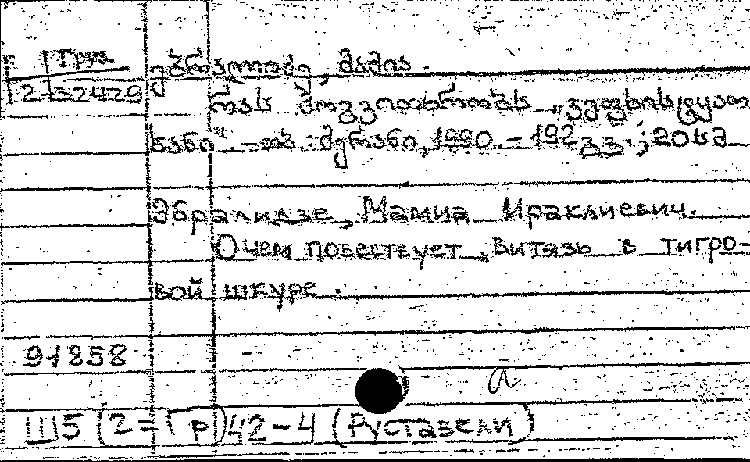 Груз
2-32429
ებრალიძე, მამია.
რას მოგვითხრობს „ვეფხისტყაო
სანი". – თბ. : მერანი, 1990. – 192 გვ. ; 20 სმ
Эбралидзе, Мамиа Ираклиевич.
О чем повествует „Витязь в тигро-
вой шкуре".
91858
а
Ш5 (2=Гр) 42-4 (Руставели)